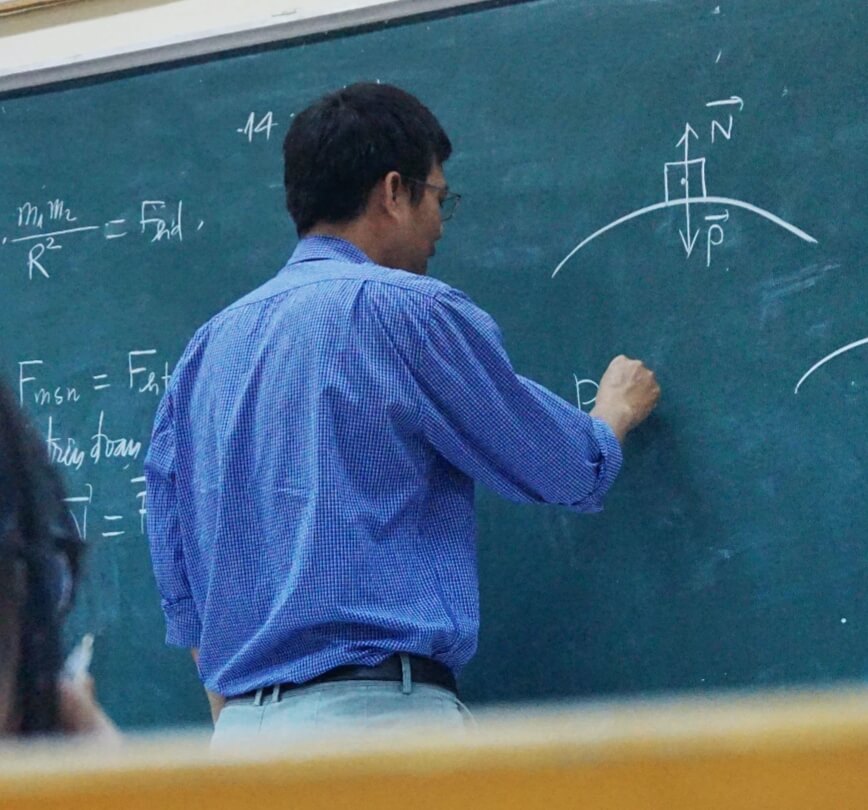 -14
m₁m₂/R² = Fhd.
N
P
Fmsn = Fht
trên đoạn
N = F
P